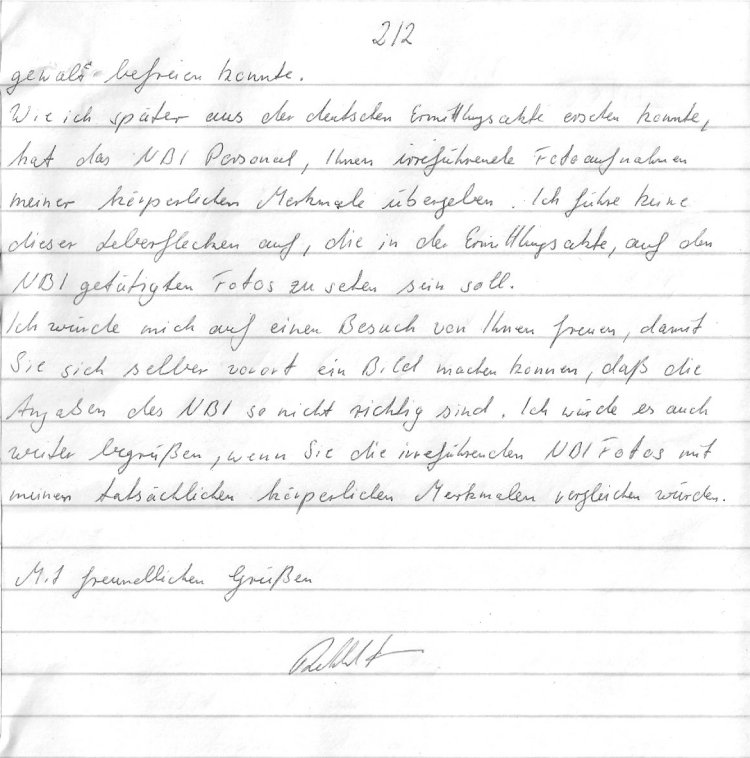 2/2
gewalt befreien konnte.
Wie ich später aus der deutschen Ermittlungsakte ersehen konnte,
hat das NBI Personal, Ihnen irreführende Fotoaufnahmen
meiner körperlichen Merkmale übergeben. Ich führe keine
dieser Leberflecken auf, die in der Ermittlungsakte, auf den
NBI getätigten Fotos zu sehen sein soll.
Ich würde mich auf einen Besuch von Ihnen freuen, damit
Sie sich selber vorort ein Bild machen können, daß die
Angaben des NBI so nicht richtig sind. Ich würde es auch
weiter begrüßen, wenn Sie die irreführenden NBI Fotos mit
meinen tatsächlichen körperlichen Merkmalen vergleichen würden.
Mit freundlichen Grüßen